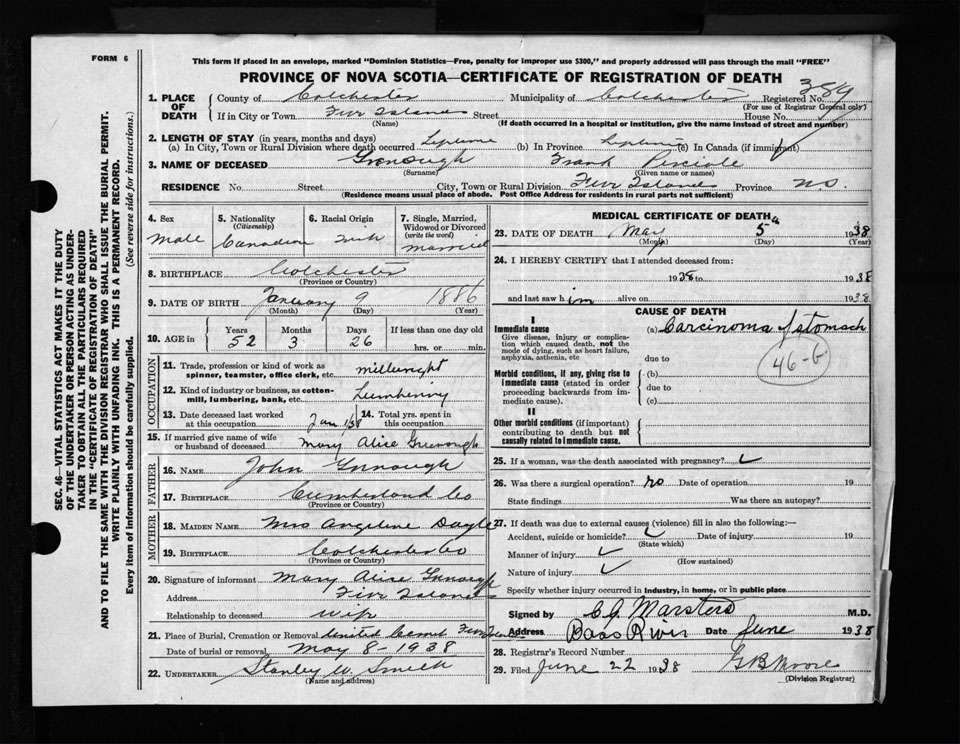 FORM 6
This form if placed in an envelope, marked "Dominion Statistics—Free, penalty for improper use $300," and properly addressed will pass through the mail "FREE"
PROVINCE OF NOVA SCOTIA—CERTIFICATE OF REGISTRATION OF DEATH
389
1. PLACE OF DEATH County of Colchester Municipality of Colchester Registered No.
(For use of Registrar General only)
If in City or Town Five Islands Street House No.
(Name) (If death occurred in a hospital or institution, give the name instead of street and number)
2. LENGTH OF STAY (in years, months and days)
(a) In City, Town or Rural Division where death occurred Lifetime (b) In Province Lifetime (c) In Canada (if immigrant)
3. NAME OF DECEASED Frank
(Surname) (Given name or names)
RESIDENCE No. Street City, Town or Rural Division Five Islands Province NS.
(Residence means usual place of abode. Post Office Address for residents in rural parts not sufficient)
4. Sex 5. Nationality (Citizenship) 6. Racial Origin 7. Single, Married, Widowed or Divorced (write the word)
Male Canadian married
8. BIRTHPLACE Colchester
(Province or County)
9. DATE OF BIRTH January 9 1886
(Month) (Day) (Year)
10. AGE in Years Months Days If less than one day old
52 3 26 hrs. or min.
OCCUPATION
11. Trade, profession or kind of work as spinner, teamster, office clerk, etc. millwright
12. Kind of industry or business, as cotton-mill, lumbering, bank, etc. Lumbering
13. Date deceased last worked at this occupation Jan 1/38 14. Total yrs. spent in this occupation
15. If married give name of wife or husband of deceased Mary Alice Greenough
FATHER
16. NAME John
17. BIRTHPLACE Cumberland Co
(Province or County)
MOTHER
18. MAIDEN NAME Mrs Angeline
19. BIRTHPLACE Colchester Co
(Province or County)
20. Signature of informant Mary Alice
Address Five Islands
Relationship to deceased wife
21. Place of Burial, Cremation or Removal United
Date of burial or removal May 8 - 1938
22. UNDERTAKER Stanley W. Smith
(Name and address)
MEDICAL CERTIFICATE OF DEATH
23. DATE OF DEATH May 5 1938
(Month) (Day) (Year)
24. I HEREBY CERTIFY that I attended deceased from:
1938 to 1938
and last saw him alive on 1938.
CAUSE OF DEATH
I
Immediate cause (a) Carcinoma of stomach
Give disease, injury or complication which caused death, not the mode of dying, such as heart failure, asphyxia, asthenia, etc
due to
46-b
Morbid conditions, if any, giving rise to immediate cause (stated in order proceeding backwards from immediate cause).
(b)
due to
(c)
II
Other morbid conditions (if important) contributing to death but not causally related to immediate cause.
25. If a woman, was the death associated with pregnancy?
26. Was there a surgical operation? no Date of operation 19
State findings Was there an autopsy?
27. If death was due to external causes (violence) fill in also the following:—
Accident, suicide or homicide? Date of injury 19
(State which)
Manner of injury
(How sustained)
Nature of injury
Specify whether injury occurred in industry, in home, or in public place
Signed by C J Marsters M.D.
Address Bass River Date June 1938
28. Registrar's Record Number
29. Filed June 22 1938 G B Moore
(Division Registrar)
SEC. 46—VITAL STATISTICS ACT MAKES IT THE DUTY
OF THE UNDERTAKER OR PERSON ACTING AS UNDER-
TAKER TO OBTAIN ALL THE PARTICULARS REQUIRED
IN THE "CERTIFICATE OF REGISTRATION OF DEATH"
AND TO FILE THE SAME WITH THE DIVISION REGISTRAR WHO SHALL ISSUE THE BURIAL PERMIT.
WRITE PLAINLY WITH UNFADING INK. THIS IS A PERMANENT RECORD.
Every item of information should be carefully supplied. (See reverse side for instructions.)